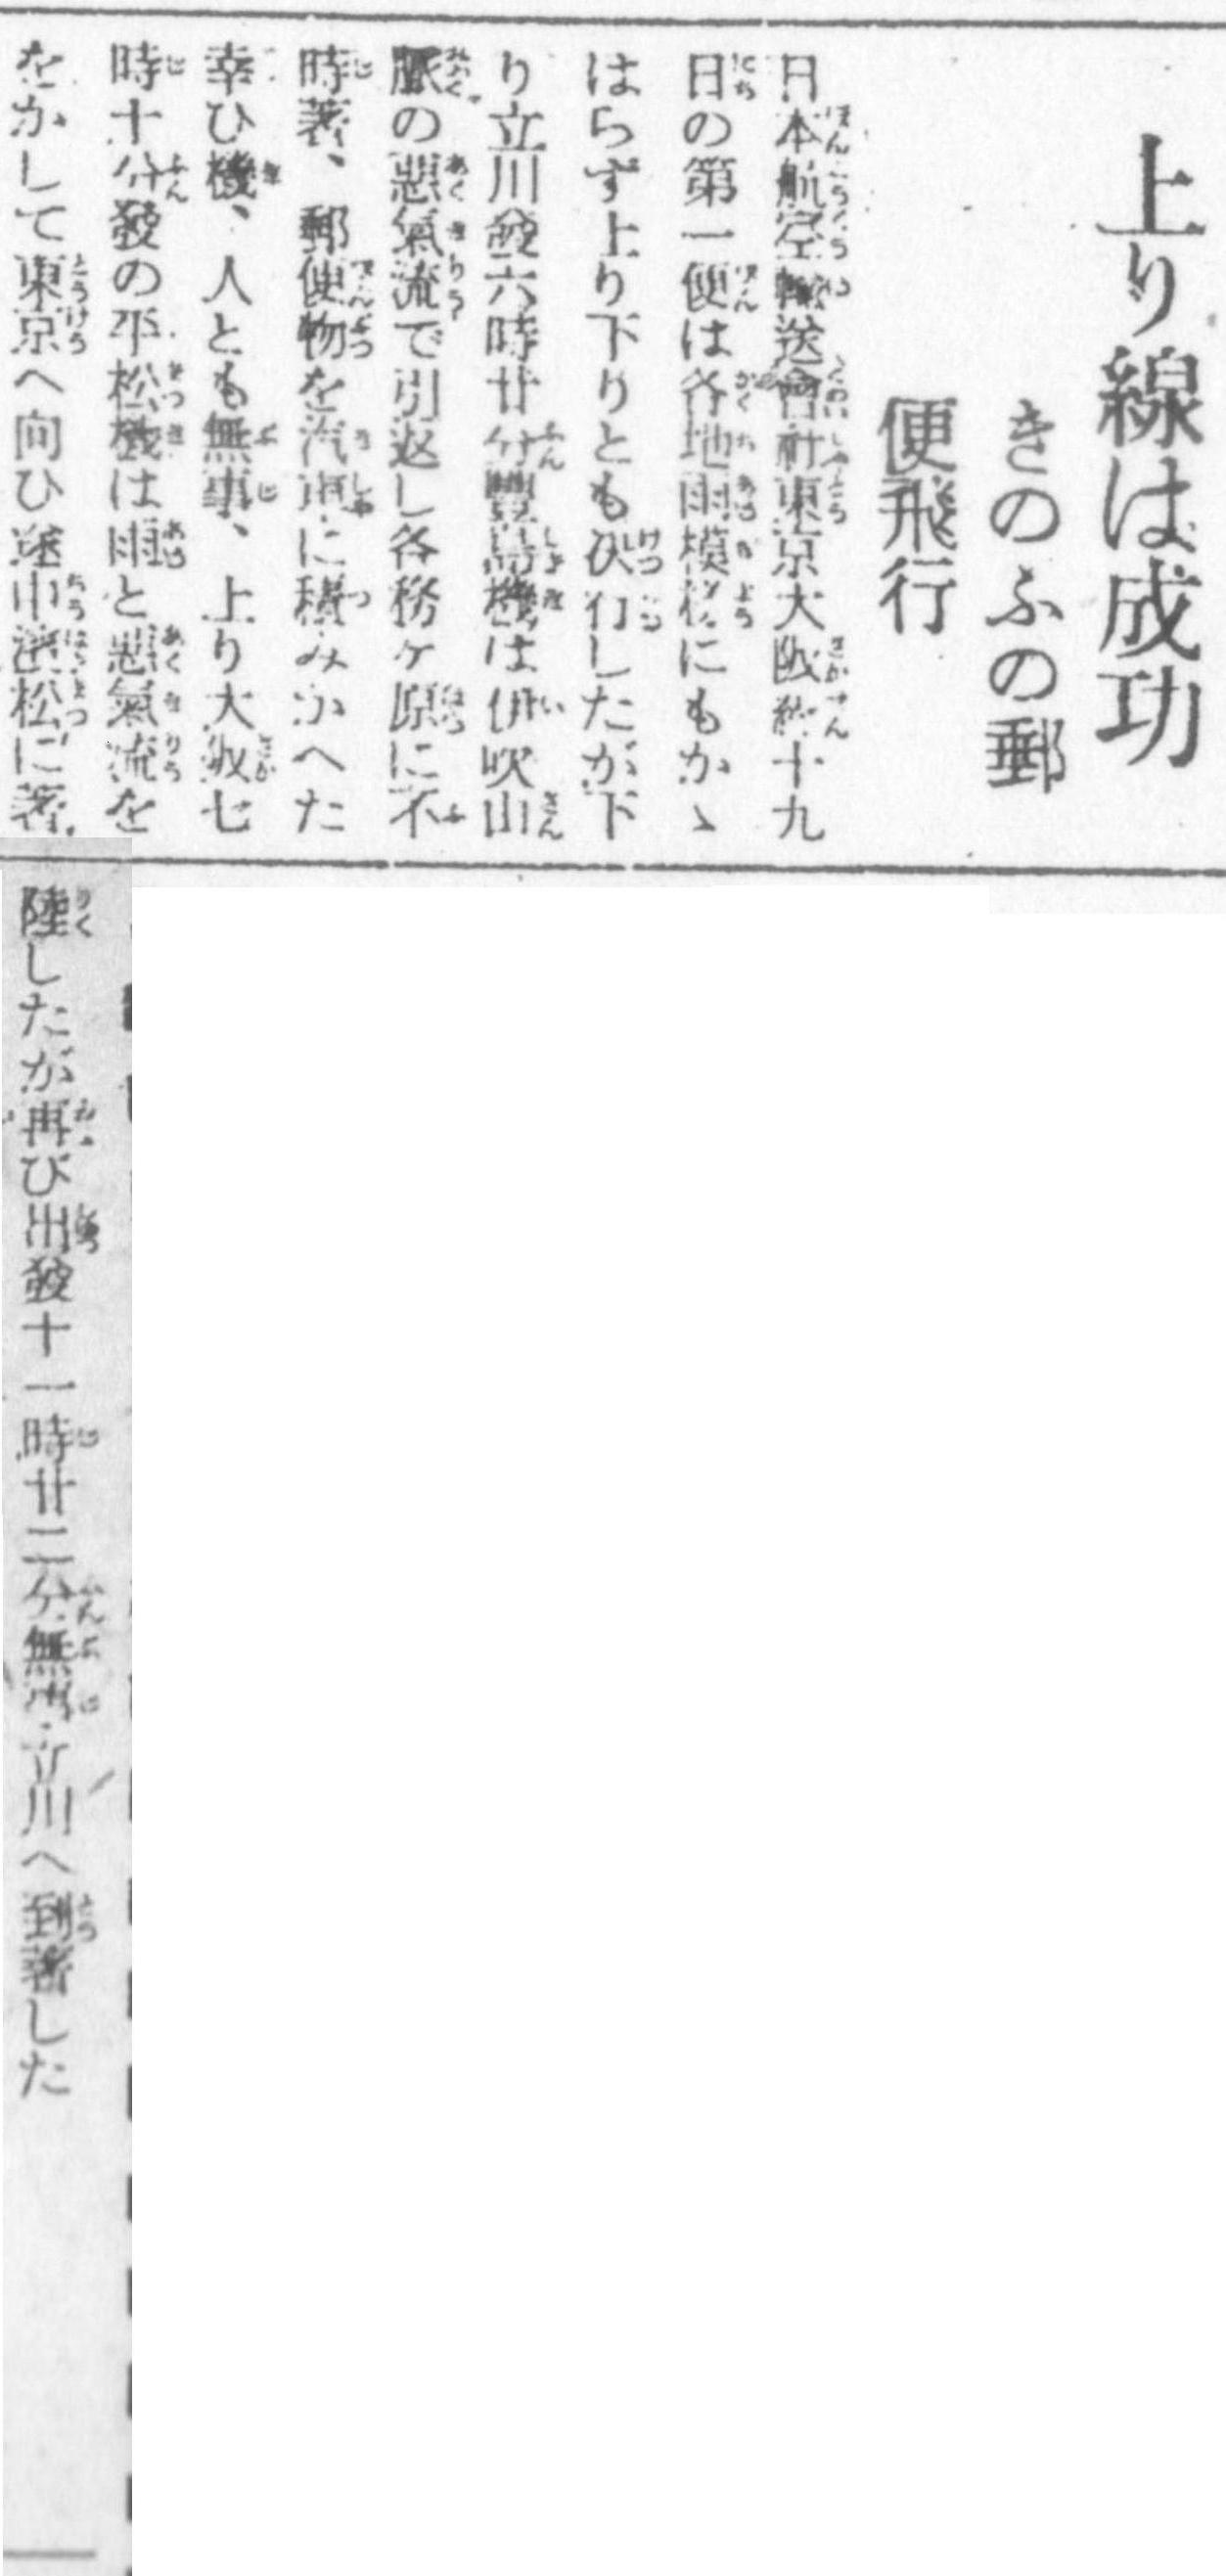 上り線は成功
きのふの郵
便飛行
日本航空輸送會社東京大阪線十九
日の第一便は各地雨模様にもかゝ
はらず上り下りとも決行したが下
り立川發六時廿分豐島機は伊吹山
脈の惡氣流で引返し各務ヶ原に不
時著、郵便物を汽車に積みかへた
幸ひ機、人とも無事、上り大阪七
時十分發の平松機は雨と惡氣流を
をかして東京へ向ひ途中濱松に著
陸したが再び出發十一時廿二分無事立川へ到著した